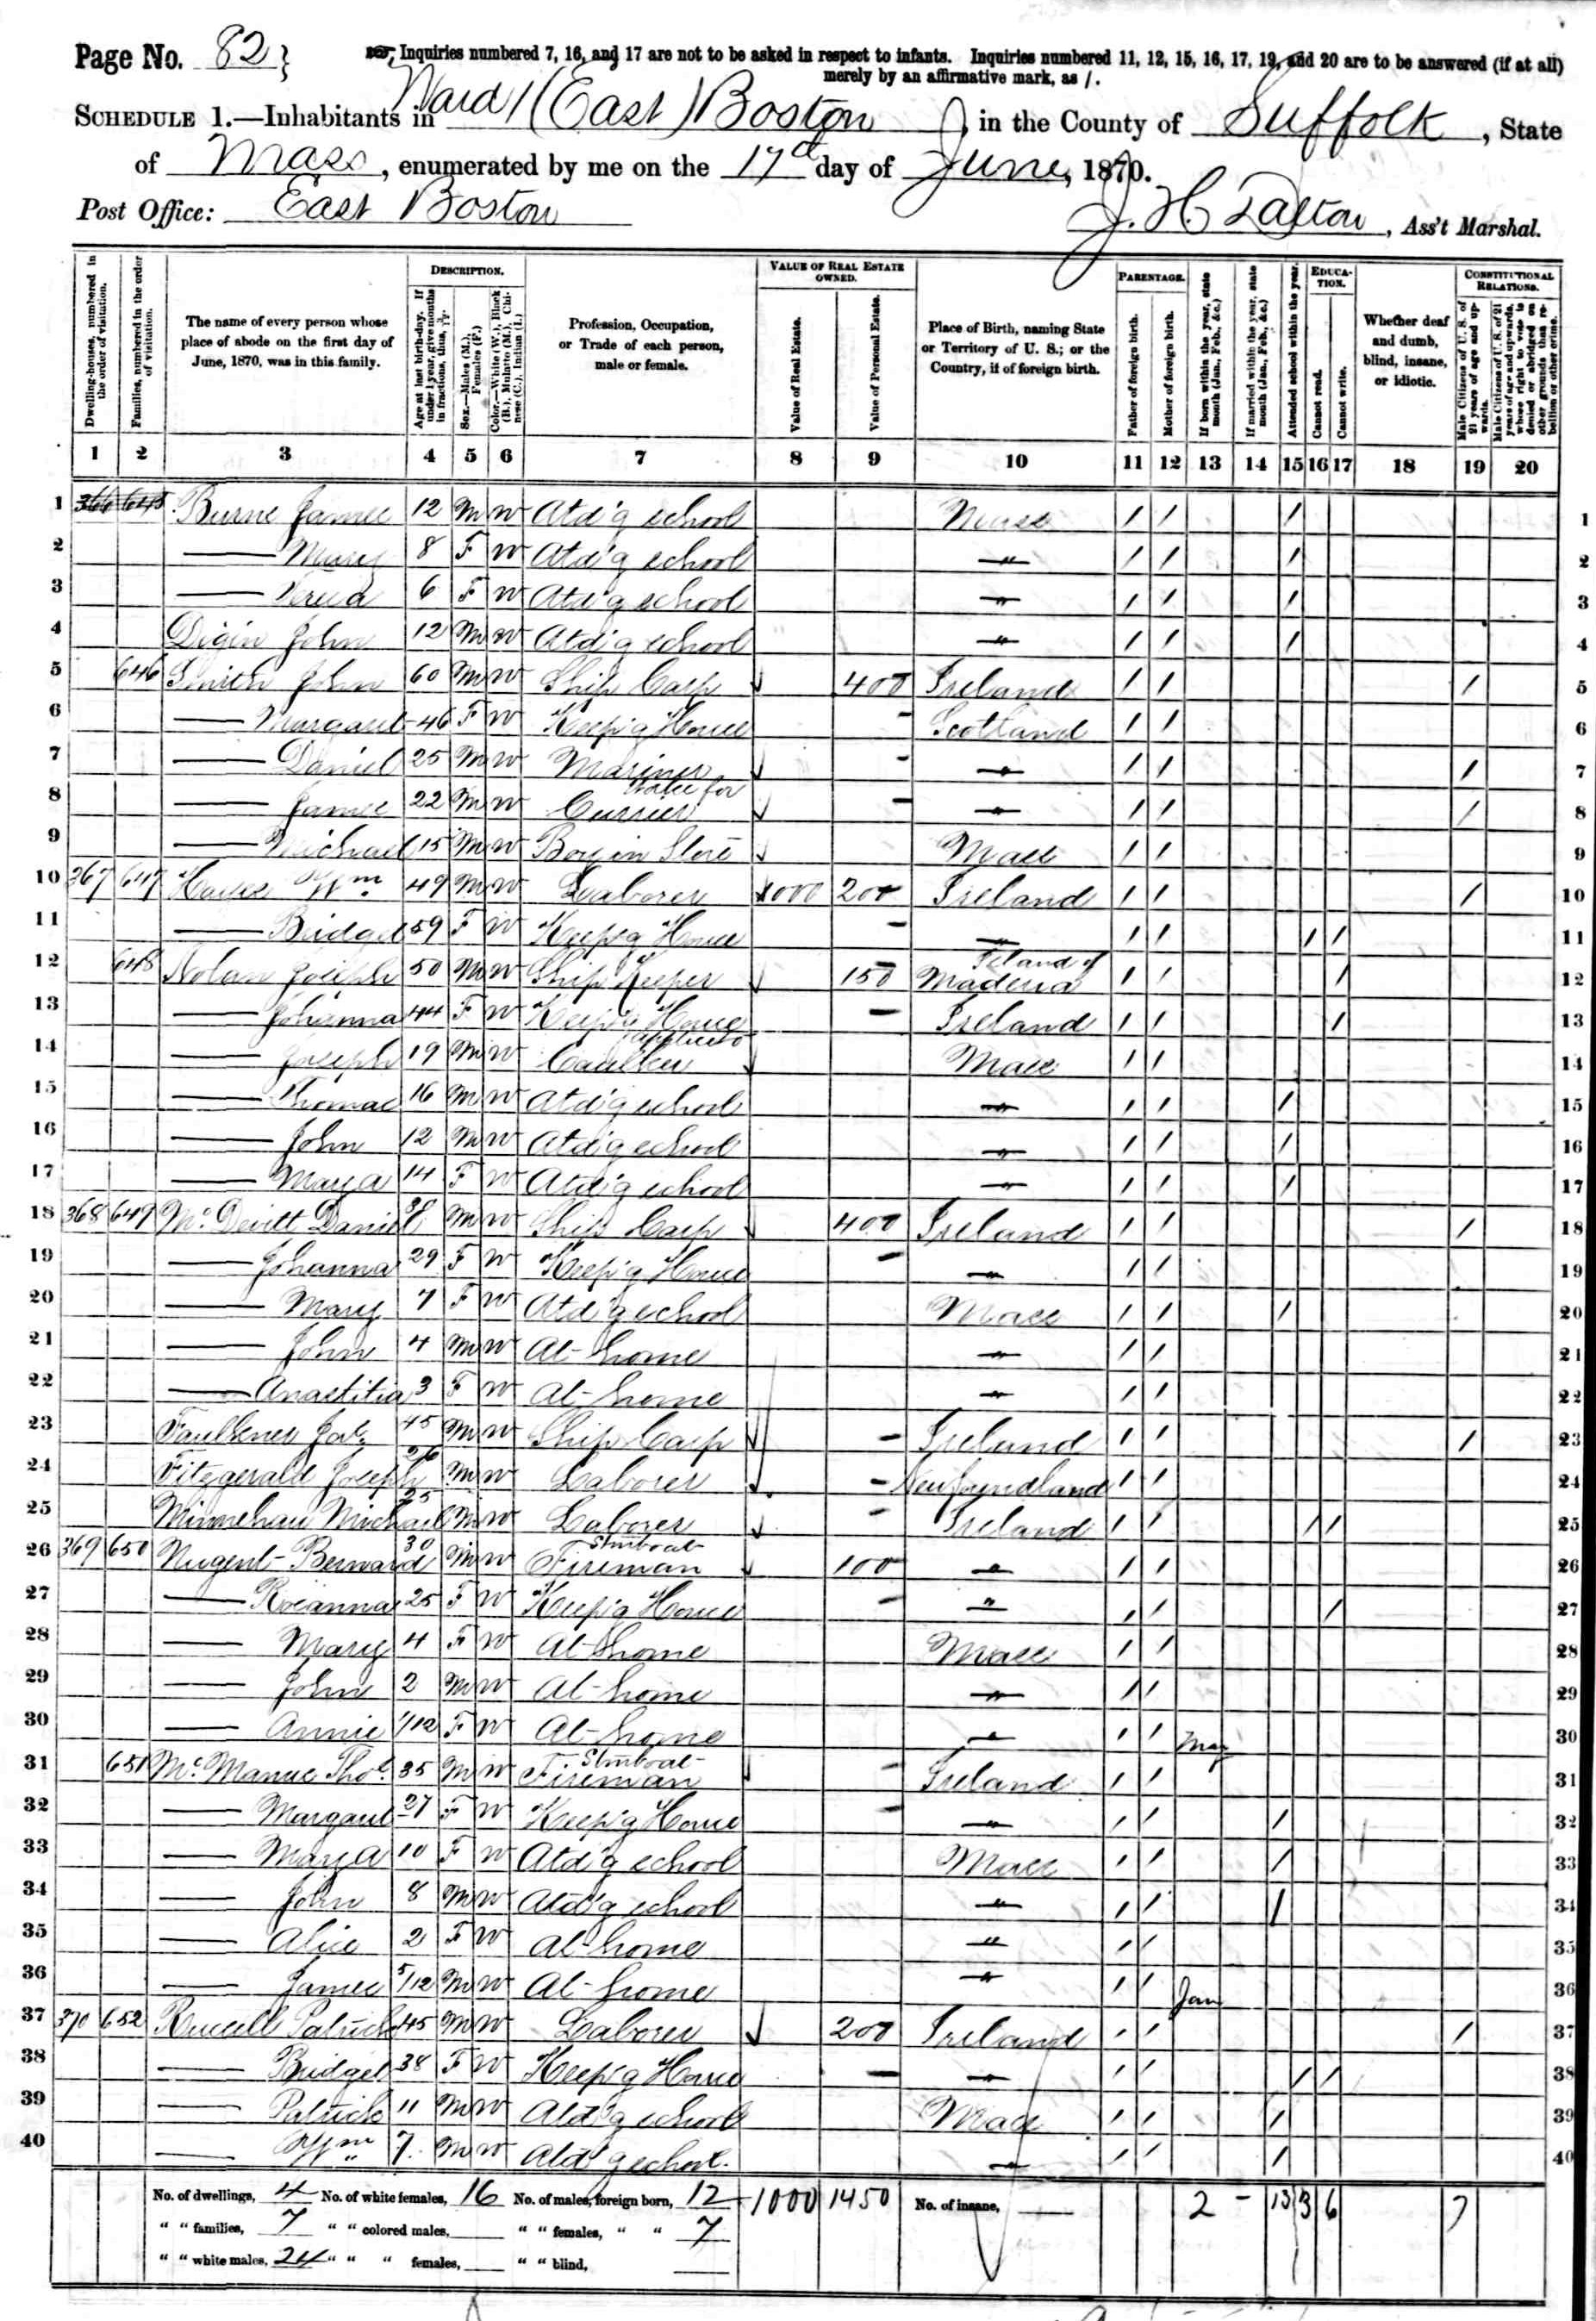 Page No. 82} Inquiries numbered 7, 16, and 17 are not to be asked in respect to infants. Inquiries numbered 11, 12, 15, 16, 17, 19, and 20 are to be answered (if at all)
merely by an affirmative mark, as /.
SCHEDULE 1.—Inhabitants in Ward 1 (East) Boston, in the County of Suffolk, State
of Mass, enumerated by me on the 17d day of June, 1870.
Post Office: East Boston J. H. Dalton, Ass't Marshal.
Dwelling-houses, numbered in the order of visitation.
Families, numbered in the order of visitation.
The name of every person whose place of abode on the first day of June, 1870, was in this family.
DESCRIPTION.
Age at last birth-day. If under 1 year, give months in fractions, thus, 3/12.
Sex.—Males (M.), Females (F.)
Color.—White (W.), Black (B.), Mulatto (M.), Chinese (C.), Indian (I.)
Profession, Occupation, or Trade of each person, male or female.
VALUE OF REAL ESTATE OWNED.
Value of Real Estate.
Value of Personal Estate.
Place of Birth, naming State or Territory of U. S.; or the Country, if of foreign birth.
PARENTAGE.
Father of foreign birth.
Mother of foreign birth.
If born within the year, state month (Jan., Feb., &c.)
If married within the year, state month (Jan., Feb., &c.)
EDUCATION.
Attended school within the year.
Cannot read.
Cannot write.
Whether deaf and dumb, blind, insane, or idiotic.
CONSTITUTIONAL RELATIONS.
Male Citizens of U. S. of 21 years of age and upwards.
Male Citizens of U. S. of 21 years of age and upwards, whose right to vote is denied or abridged on other grounds than rebellion or other crime.
1 2 3 4 5 6 7 8 9 10 11 12 13 14 15 16 17 18 19 20
1 366 645 Burne James 12 M W Atd'g school Mass / / / 1
2 — Mary 8 F W Atd'g school " / / / 2
3 — 6 F W Atd'g school " / / / 3
4 Digin John 12 M W Atd'g school " / / / 4
5 646 Smith John 60 M W Ship Carp 400 Ireland / / / 5
6 — Margaret 46 F W Keep'g House - Scotland / / 6
7 — Daniel 25 M W Mariner - " / / / 7
8 — James 22 M W Currier - " / / / 8
9 — Michael 15 M W Boy in Store Mass / / 9
10 367 647 Hayes Wm 49 M W Laborer 1000 200 Ireland / / / 10
11 — Bridget 59 F W Keep'g House - " / / / / 11
12 648 Nolan Joseph 50 M W Ship Keeper 150 Island of Maderia / / / 12
13 — Johanna 44 F W Keep'g House - Ireland / / / 13
14 — Joseph 19 M W Caulker Mass / / 14
15 — Thomas 16 M W Atd'g school " / / / 15
16 — John 12 M W Atd'g school " / / / 16
17 — Mary A 14 F W Atd'g school " / / / 17
18 368 649 McDevitt Daniel 38 M W Ship Carp 400 Ireland / / / 18
19 — Johanna 29 F W Keep'g House - " / / 19
20 — Mary 7 F W Atd'g school Mass / / / 20
21 — John 4 M W At home " / / 21
22 — Anastitia 3 F W At home " / / 22
23 Faulkner Jas 45 M W Ship Carp - Ireland / / / 23
24 Fitzgerald Joseph 26 M W Laborer - Newfoundland / / 24
25 Minnehan Michael 25 M W Laborer - Ireland / / / / 25
26 369 650 Nugent Bernard 30 M W Stmboat Fireman 100 " / / 26
27 — Roeanna 25 F W Keep'g House - " / / / 27
28 — Mary 4 F W At home Mass / / 28
29 — John 2 M W At home " / / 29
30 — Annie 1/12 F W At home " / / May 30
31 651 McManus Thos 35 M W Stmboat Fireman - Ireland / / 31
32 — Margaret 27 F W Keep'g House - " / / / 32
33 — Mary A 10 F W Atd'g school Mass / / / 33
34 — John 8 M W Atd'g school " / / / 34
35 — Alice 2 F W At home " / / 35
36 — James 5/12 M W At home " / / Jan 36
37 370 652 Russell Patrick 45 M W Laborer 200 Ireland / / / 37
38 — Bridget 38 F W Keep'g House - " / / / / 38
39 — Patrick 11 M W Atd'g school Mass / / / 39
40 — Wm 7 M W Atd'g school " / / / 40
No. of dwellings, 4 No. of white females, 16 No. of males, foreign born, 12 1000 1450 No. of insane, — 2 - 13 3 6 7
" " families, 7 " " colored males, " " females, " " 7
" " white males, 24 " " " females, " " blind,